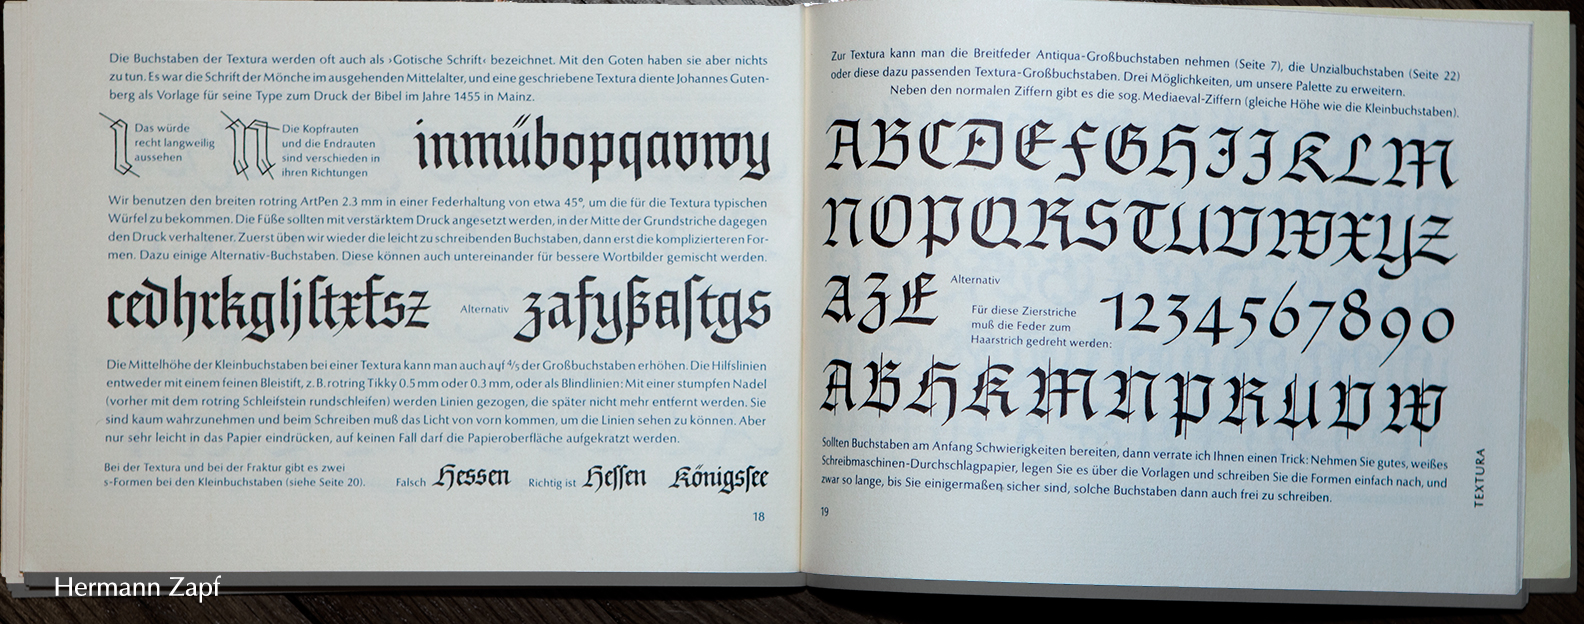 Die Buchstaben der Textura werden oft auch als ›Gotische Schrift‹ bezeichnet. Mit den Goten haben sie aber nichts
zu tun. Es war die Schrift der Mönche im ausgehenden Mittelalter, und eine geschriebene Textura diente Johannes Guten-
berg als Vorlage für seine Type zum Druck der Bibel im Jahre 1455 in Mainz.
Das würde
recht langweilig
aussehen
n
Die Kopfrauten
und die Endrauten
sind verschieden in
ihren Richtungen
inmübopqavwy
Wir benutzen den breiten rotring ArtPen 2.3 mm in einer Federhaltung von etwa 45°, um die für die Textura typischen
Würfel zu bekommen. Die Füße sollten mit verstärktem Druck angesetzt werden, in der Mitte der Grundstriche dagegen
den Druck verhaltener. Zuerst üben wir wieder die leicht zu schreibenden Buchstaben, dann erst die komplizierteren For-
men. Dazu einige Alternativ-Buchstaben. Diese können auch untereinander für bessere Wortbilder gemischt werden.
cedhrkgljſtxfsz
Alternativ
zafyßaſtgs
Die Mittelhöhe der Kleinbuchstaben bei einer Textura kann man auch auf 4/5 der Großbuchstaben erhöhen. Die Hilfslinien
entweder mit einem feinen Bleistift, z. B. rotring Tikky 0.5 mm oder 0.3 mm, oder als Blindlinien: Mit einer stumpfen Nadel
(vorher mit dem rotring Schleifstein rundschleifen) werden Linien gezogen, die später nicht mehr entfernt werden. Sie
sind kaum wahrzunehmen und beim Schreiben muß das Licht von vorn kommen, um die Linien sehen zu können. Aber
nur sehr leicht in das Papier eindrücken, auf keinen Fall darf die Papieroberfläche aufgekratzt werden.
Bei der Textura und bei der Fraktur gibt es zwei
s-Formen bei den Kleinbuchstaben (siehe Seite 20).
Falsch Hessen Richtig ist Heſſen Königsſee
18
Zur Textura kann man die Breitfeder Antiqua-Großbuchstaben nehmen (Seite 7), die Unzialbuchstaben (Seite 22)
oder diese dazu passenden Textura-Großbuchstaben. Drei Möglichkeiten, um unsere Palette zu erweitern.
Neben den normalen Ziffern gibt es die sog. Mediaeval-Ziffern (gleiche Höhe wie die Kleinbuchstaben).
ABCDEFGHIJKLM
NOPQRSTUVWXYZ
AZE
Alternativ
Für diese Zierstriche
muß die Feder zum
Haarstrich gedreht werden:
1234567890
ABHKMNPRUVW
Sollten Buchstaben am Anfang Schwierigkeiten bereiten, dann verrate ich Ihnen einen Trick: Nehmen Sie gutes, weißes
Schreibmaschinen-Durchschlagpapier, legen Sie es über die Vorlagen und schreiben Sie die Formen einfach nach, und
zwar so lange, bis Sie einigermaßen sicher sind, solche Buchstaben dann auch frei zu schreiben.
19
TEXTURA
Hermann Zapf